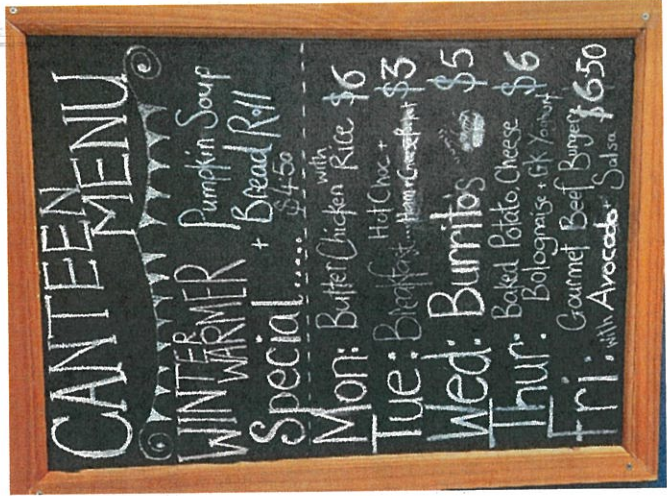 CANTEEN
MENU
WINTER
WARMER
Special......
Pumpkin Soup
+ Bread Roll
$4.50
Mon: Butter Chicken with Rice $6
Tue: Breakfast... Hot Choc + $3
Wed: Burritos $5
Thur: Baked Potato, Cheese $6
Bolognaise + GK Yoghurt
Fri: Gourmet Beef Burgers $6.50
with Avocado + Salsa